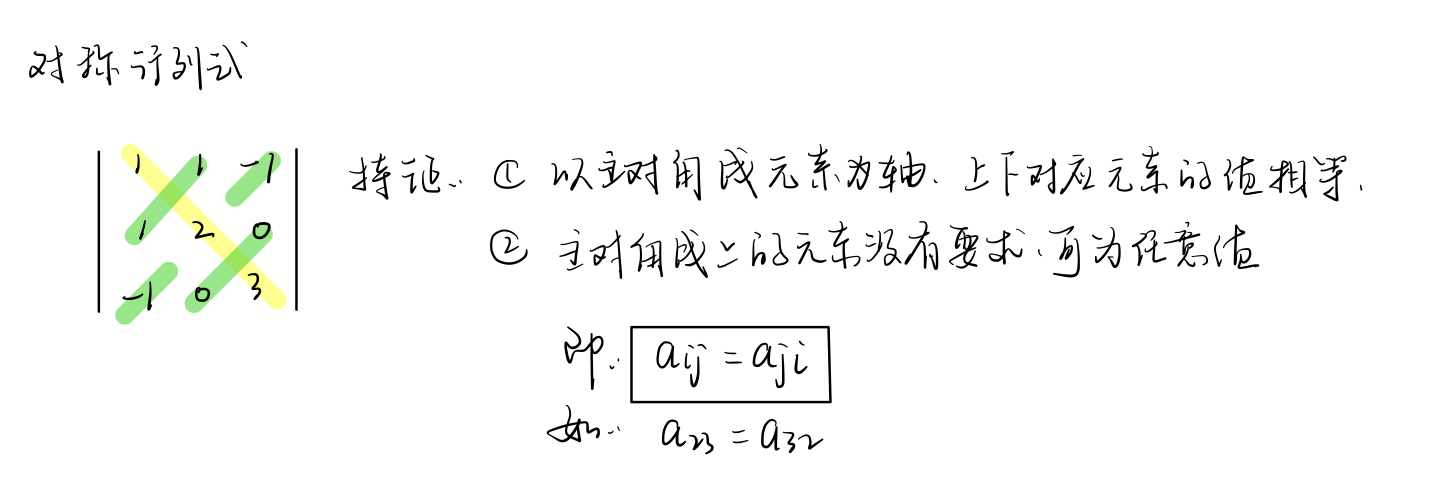 对称行列式
1 1 -1
1 2 0
-1 0 3
特征: ① 以主对角线元素为轴. 上下对应元素的值相等.
② 主对角线上的元素没有要求. 可为任意值
即: aij = aji
如: a23 = a32